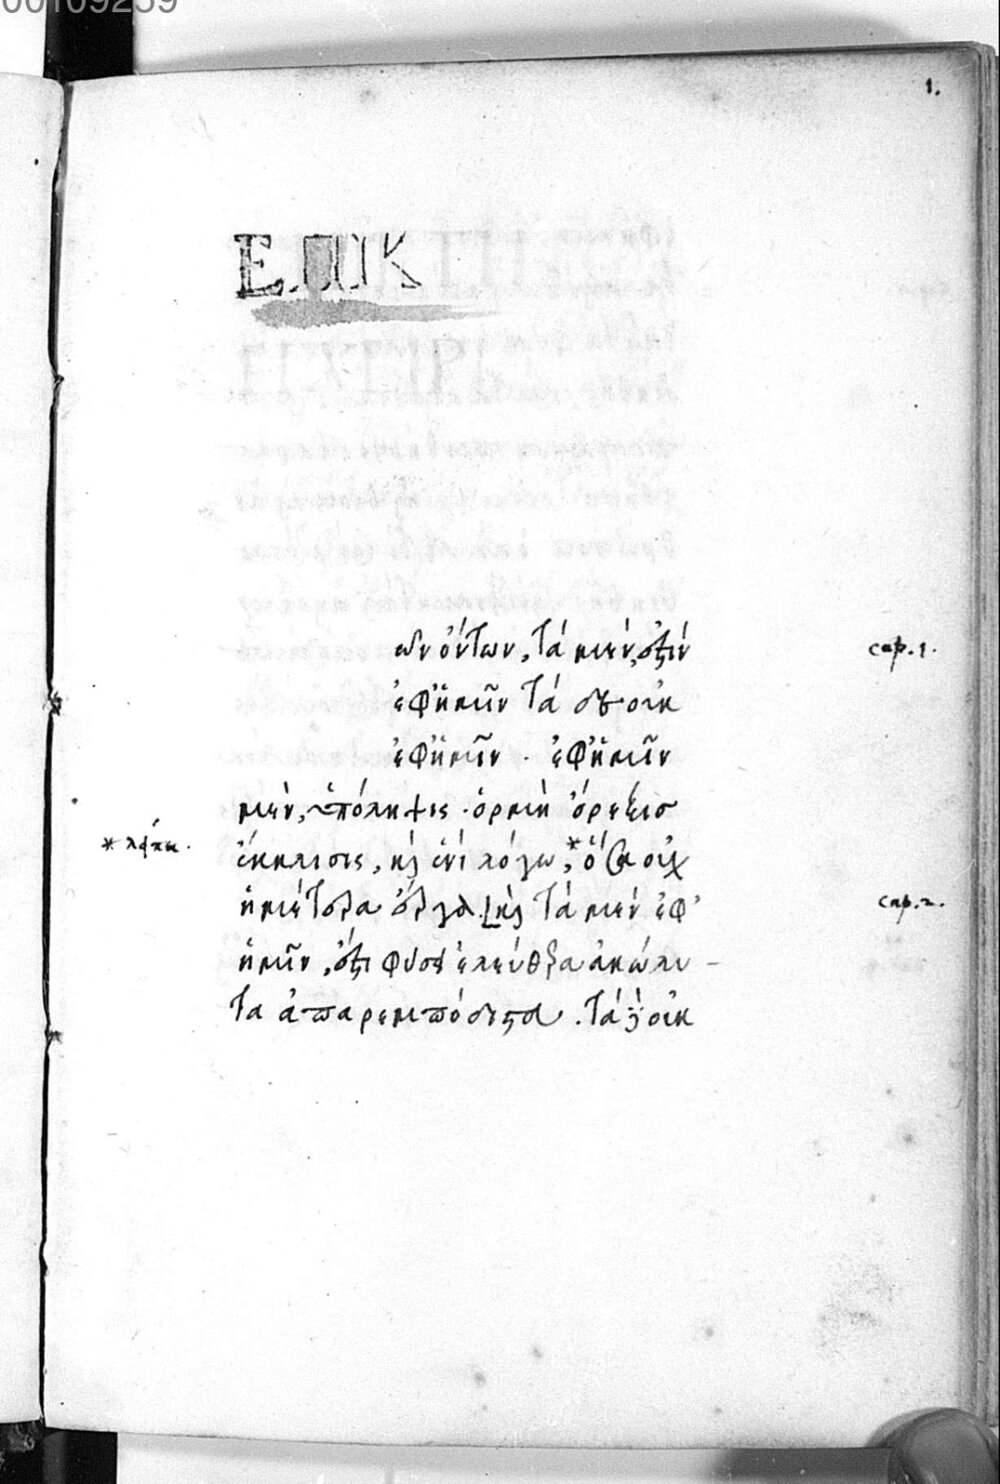 00109259
1.
Ε.ΠΙΚ
ων ὄντων, τά μεν, ἐστιν cap. 1.
ἐφ' ἡμῖν τά δε οὐκ
ἐφ' ἡμῖν. ἐφ' ἡμῖν
μεν, ὑπόληψις. ὁρμὴ ὄρεξις
ἔκκλισις, καὶ ἑνὶ λόγω,* ὅσα οὐχ
ἡμέτερα ἔργα. [καὶ τά μεν ἐφ' cap. 2.
ἡμῖν, ἐστι φύσει ἐλεύθερα ἀκώλυ-
τα ἀπαρεμπόδιστα. τά δὲ οὐκ